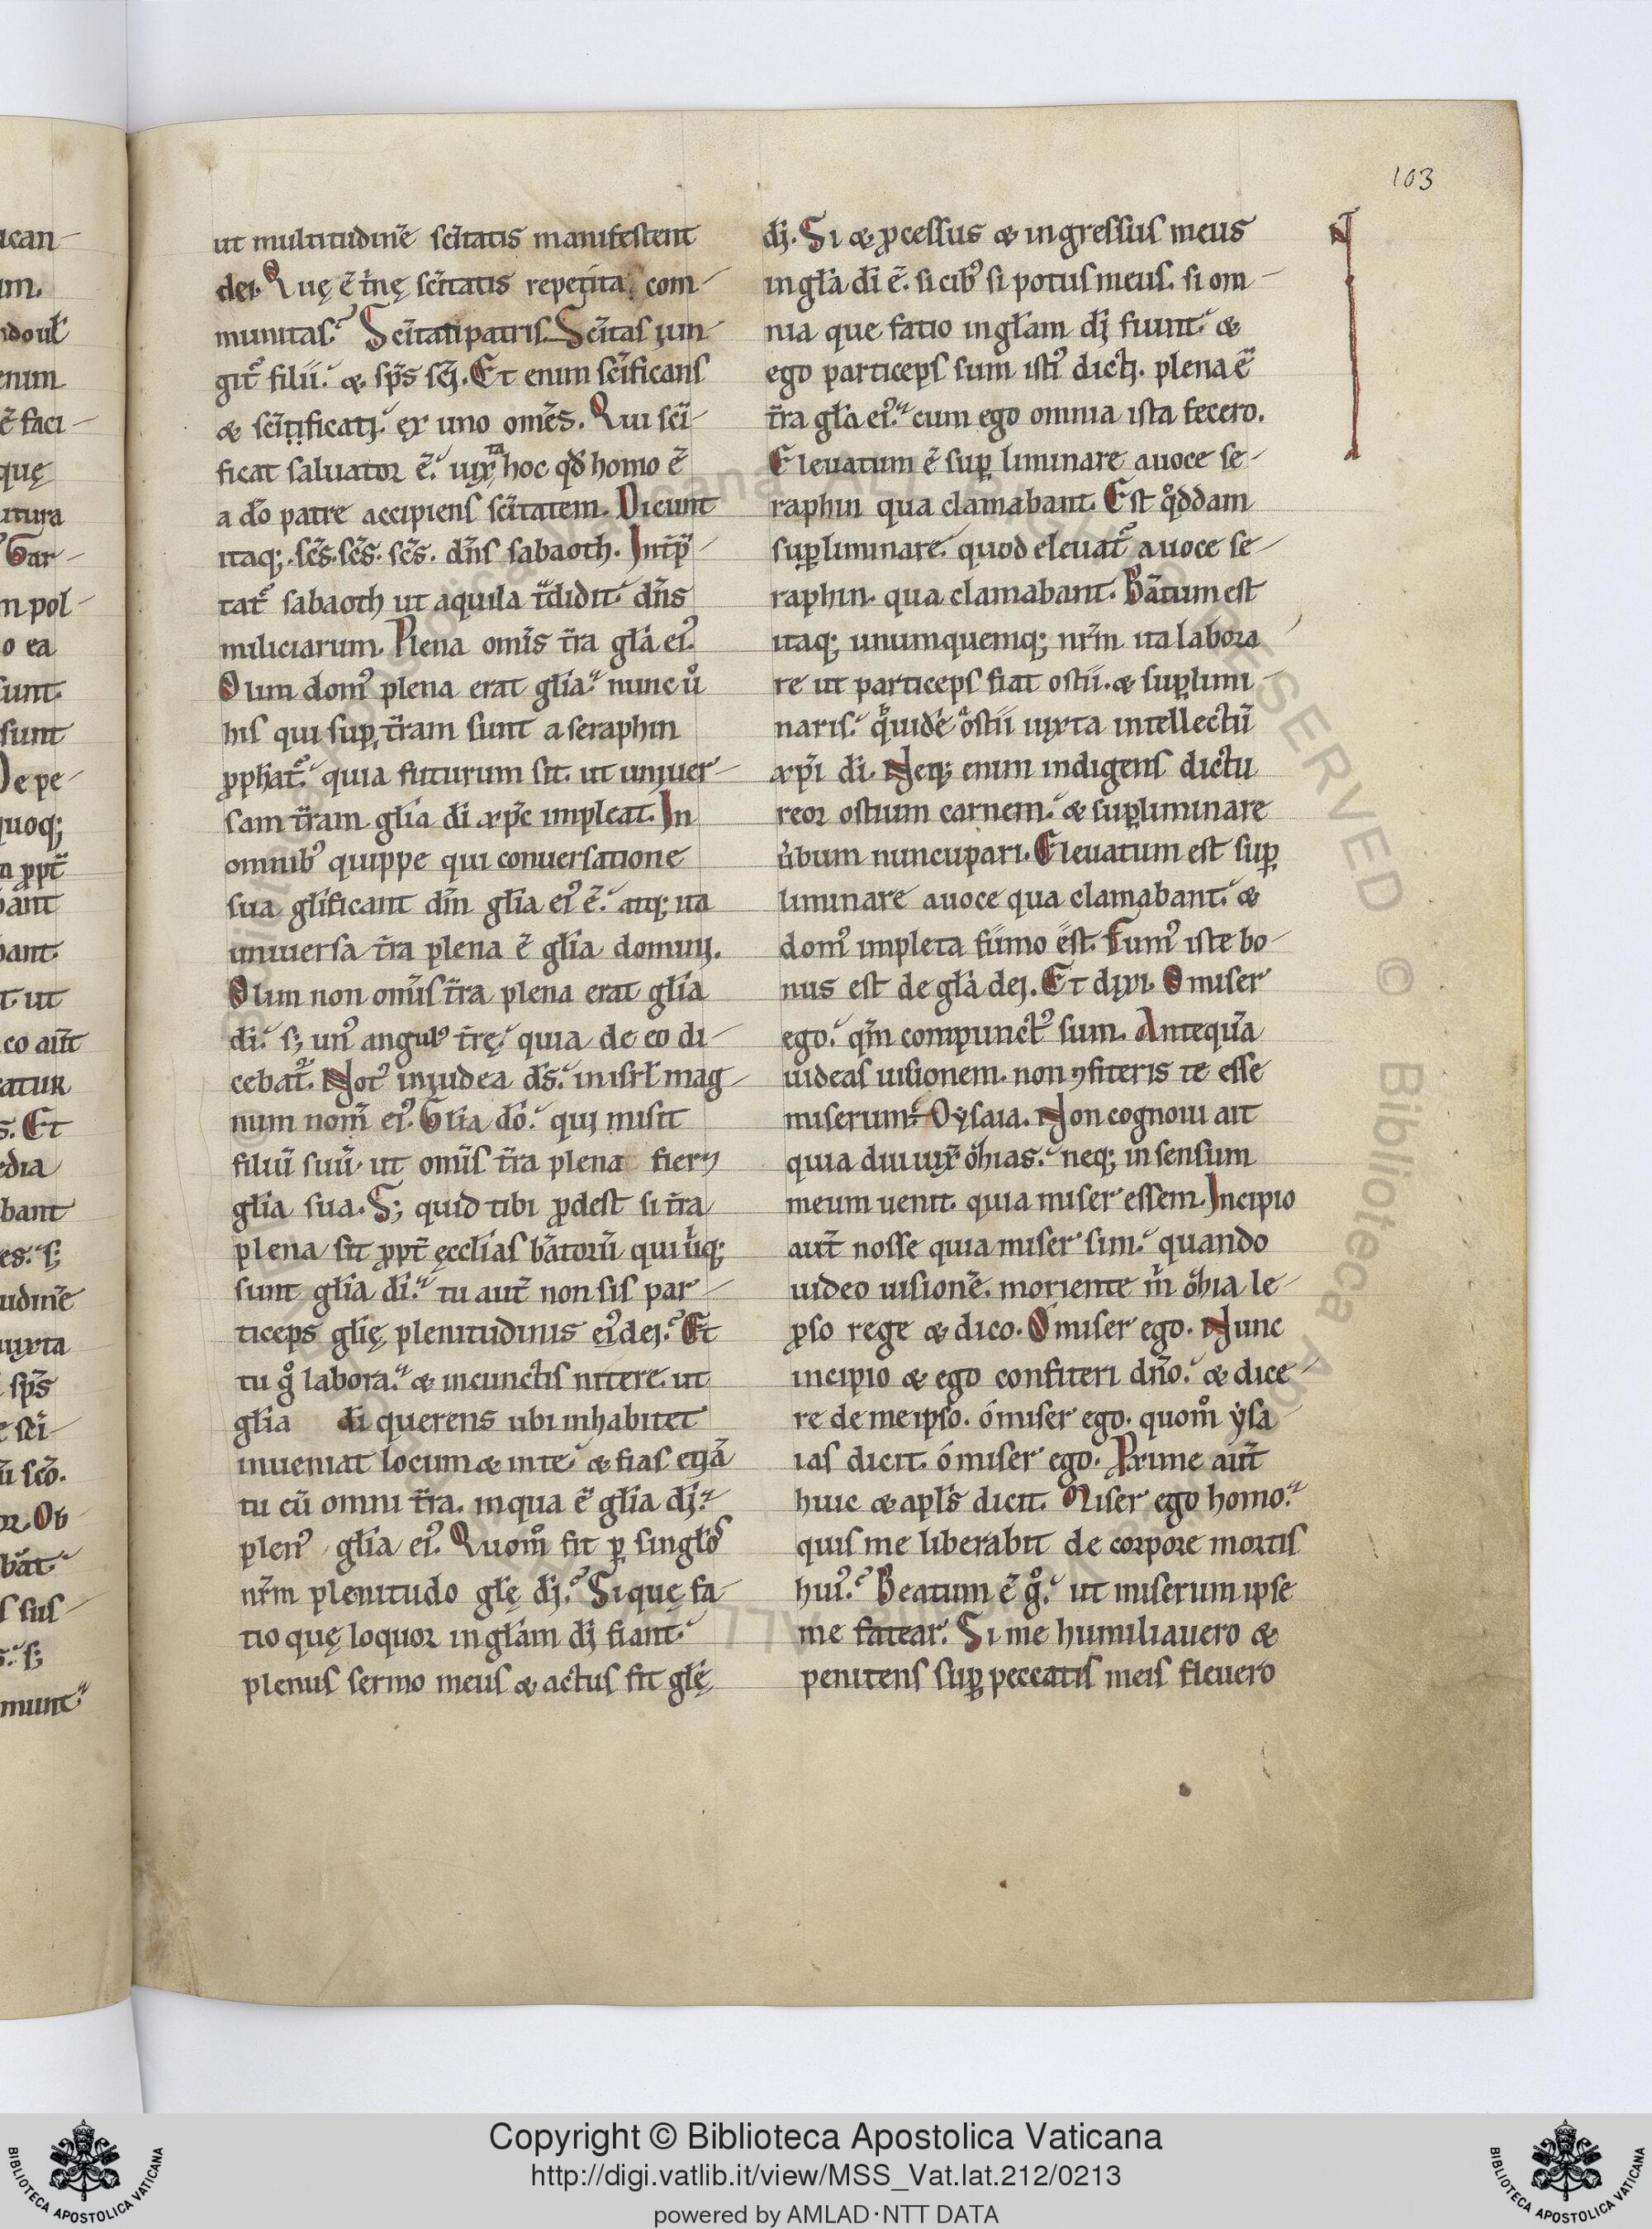 103
ut multitudinē sc̄itatis manifestent
dei. Quę ē t̄nę sc̄itatis repetita com-
munitas? Sc̄itati patris. Sc̄itas iun-
git᷑ filii. & sp̄s sc̄i. Et enim sc̄ificans
& sc̄ificati ex uno om̄s. Qui sc̄i-
ficat saluator ē. iuxta hoc qd̄ homo ē
a dō patre accipiens sc̄itatem. Dicunt
itaq;. sc̄s. sc̄s. sc̄s. dn̄s sabaoth. Int̄p̄-
tat᷑ sabaoth ut aquila t̄didit dn̄s
miliciarum. Plena om̄is t̄ra gl̄a ei᷒.
Olim dom᷒ plena erat gl̄ia. nunc ů
his qui sup̱ t̄ram sunt a seraphin
ꝓphat᷑. quia futurum sit. ut uniuer-
sam t̄ram gl̄ia dī xp̄c impleat. In
omnib᷒ quippe qui conuersatione
sua gl̄ificant dn̄m gl̄ia ei᷒ ē. atq; ita
uniuersa t̄ra plena ē gl̄ia domini.
Olim non om̄is t̄ra plena erat gl̄ia
dī. s; un᷒ angul᷒ t̄rę. quia de eo di-
cebat᷑. Not᷒ in iudea ds̄. in isrł mag-
num nom̄ ei᷒. Gl̄ia dō. qui misit
filiū suū. ut om̄is t̄ra plena fieri
gl̄ia sua. S; quid tibi ꝓdest si t̄ra
plena sit ꝓpt̄ ęccl̄ias b̄atorū qui ub̄iq;
sunt gl̄ia dī. tu aut̄ non sis par-
ticeps gl̄ię plenitudinis ei᷒ dei? Et
tu g̊ labora. & in cunctis nitere. ut
gl̄ia dī querens ubi inhabitet
inueniat locum & in te. & fias etiā
tu cū omni t̄ra. in qua ē gl̄ia dī.
plen᷒ gl̄ia ei᷒. Quom̊ fit ꝑ singl̄os
nr̄m plenitudo gl̄ę dī? Si quę fa-
tio quę loquor in gl̄am dī fiant.
plenus sermo meus & actus fit gl̄ę
dī. Si & ꝓcessus & ingressus meus
in gl̄a dī ē. si cib᷒ si potus meus. si om-
nia que fatio in gl̄am dī fiunt. &
ego particeps sum isti᷒ dicti. plena ē
t̄ra gl̄a ei᷒. cum ego omnia ista fecero.
Eleuatum ē sup̱ liminare a uoce se-
raphin qua clamabant. Est q̊ddam
sup̱liminare. quod eleuat᷑ a uoce se-
raphin. qua clamabant. B̄atum est
itaq; unumquemq; nr̄m ita labora
re ut particeps fiat ostii. & sup̱limi-
naris. q̊ uidē ostii iuxta intellectū
xp̄i dī. Neq; enim indigens dictu
reor ostium carnem. & sup̱liminare
ůbum nuncupari. Eleuatum est sup̱
liminare a uoce qua clamabant. &
dom᷒ impleta fumo est. Fum᷒ iste bo-
nus est de gl̄a dei. Et dixi. O miser
ego. qm̄ compunct᷒ sum. Antequā
uideas uisionem. non ꝯfiteris te esse
miserum? O ysaia. Non cognoui ait
quia diu uix̄ ozias. neq; in sensum
meum uenit. quia miser essem. Incipio
aut̄ nosse quia miser sim. quando
uideo uisionē. moriente m̄ ozia le-
ꝓso rege & dico. O miser ego. Nunc
incipio & ego confiteri dn̄o. & dice-
re de me ipso. ó miser ego. quom̊ ysa-
ias dicit. ó miser ego. Proxime aut̄
huic & apl̄s dicit. Miser ego homo.
quis me liberabit de corpore mortis
hui᷒? Beatum ē g̊. ut miserum ipse
me fatear. Si me humiliauero &
penitens sup̱ peccatis meis fleuero
Copyright © Biblioteca Apostolica Vaticana
http://digi.vatlib.it/view/MSS_Vat.lat.212/0213
powered by AMLAD·NTT DATA